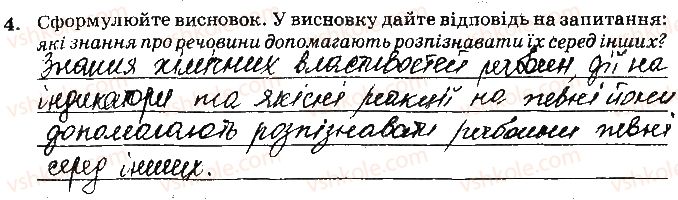 4. Сформулюйте висновок. У висновку дайте відповідь на запитання:
які знання про речовини допомагають розпізнавати їх серед інших?
Знання хімічних властивостей речовин, дії на
індикатори та якісні реакції на певні йони
допомагають розпізнавати речовини певні
серед інших.
vshkole.com